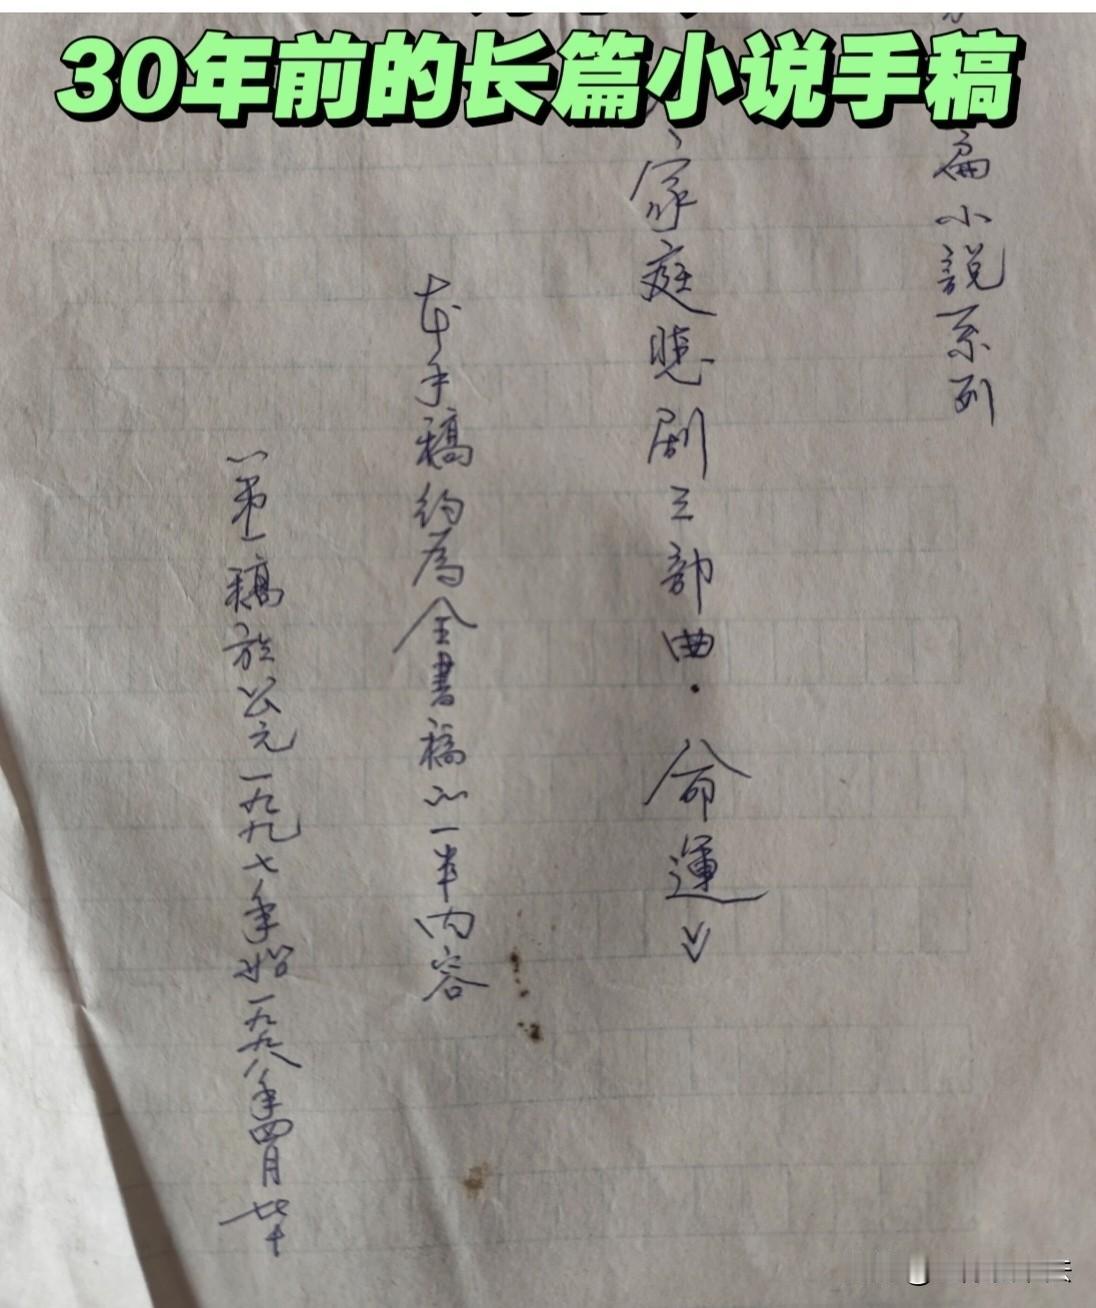 30年前的长篇小说手稿
篇小說系列
家庭晚剧三部曲·命運
本手稿约為全書稿之一半内容
第一稿於公元一九九七年始一九九八年四月